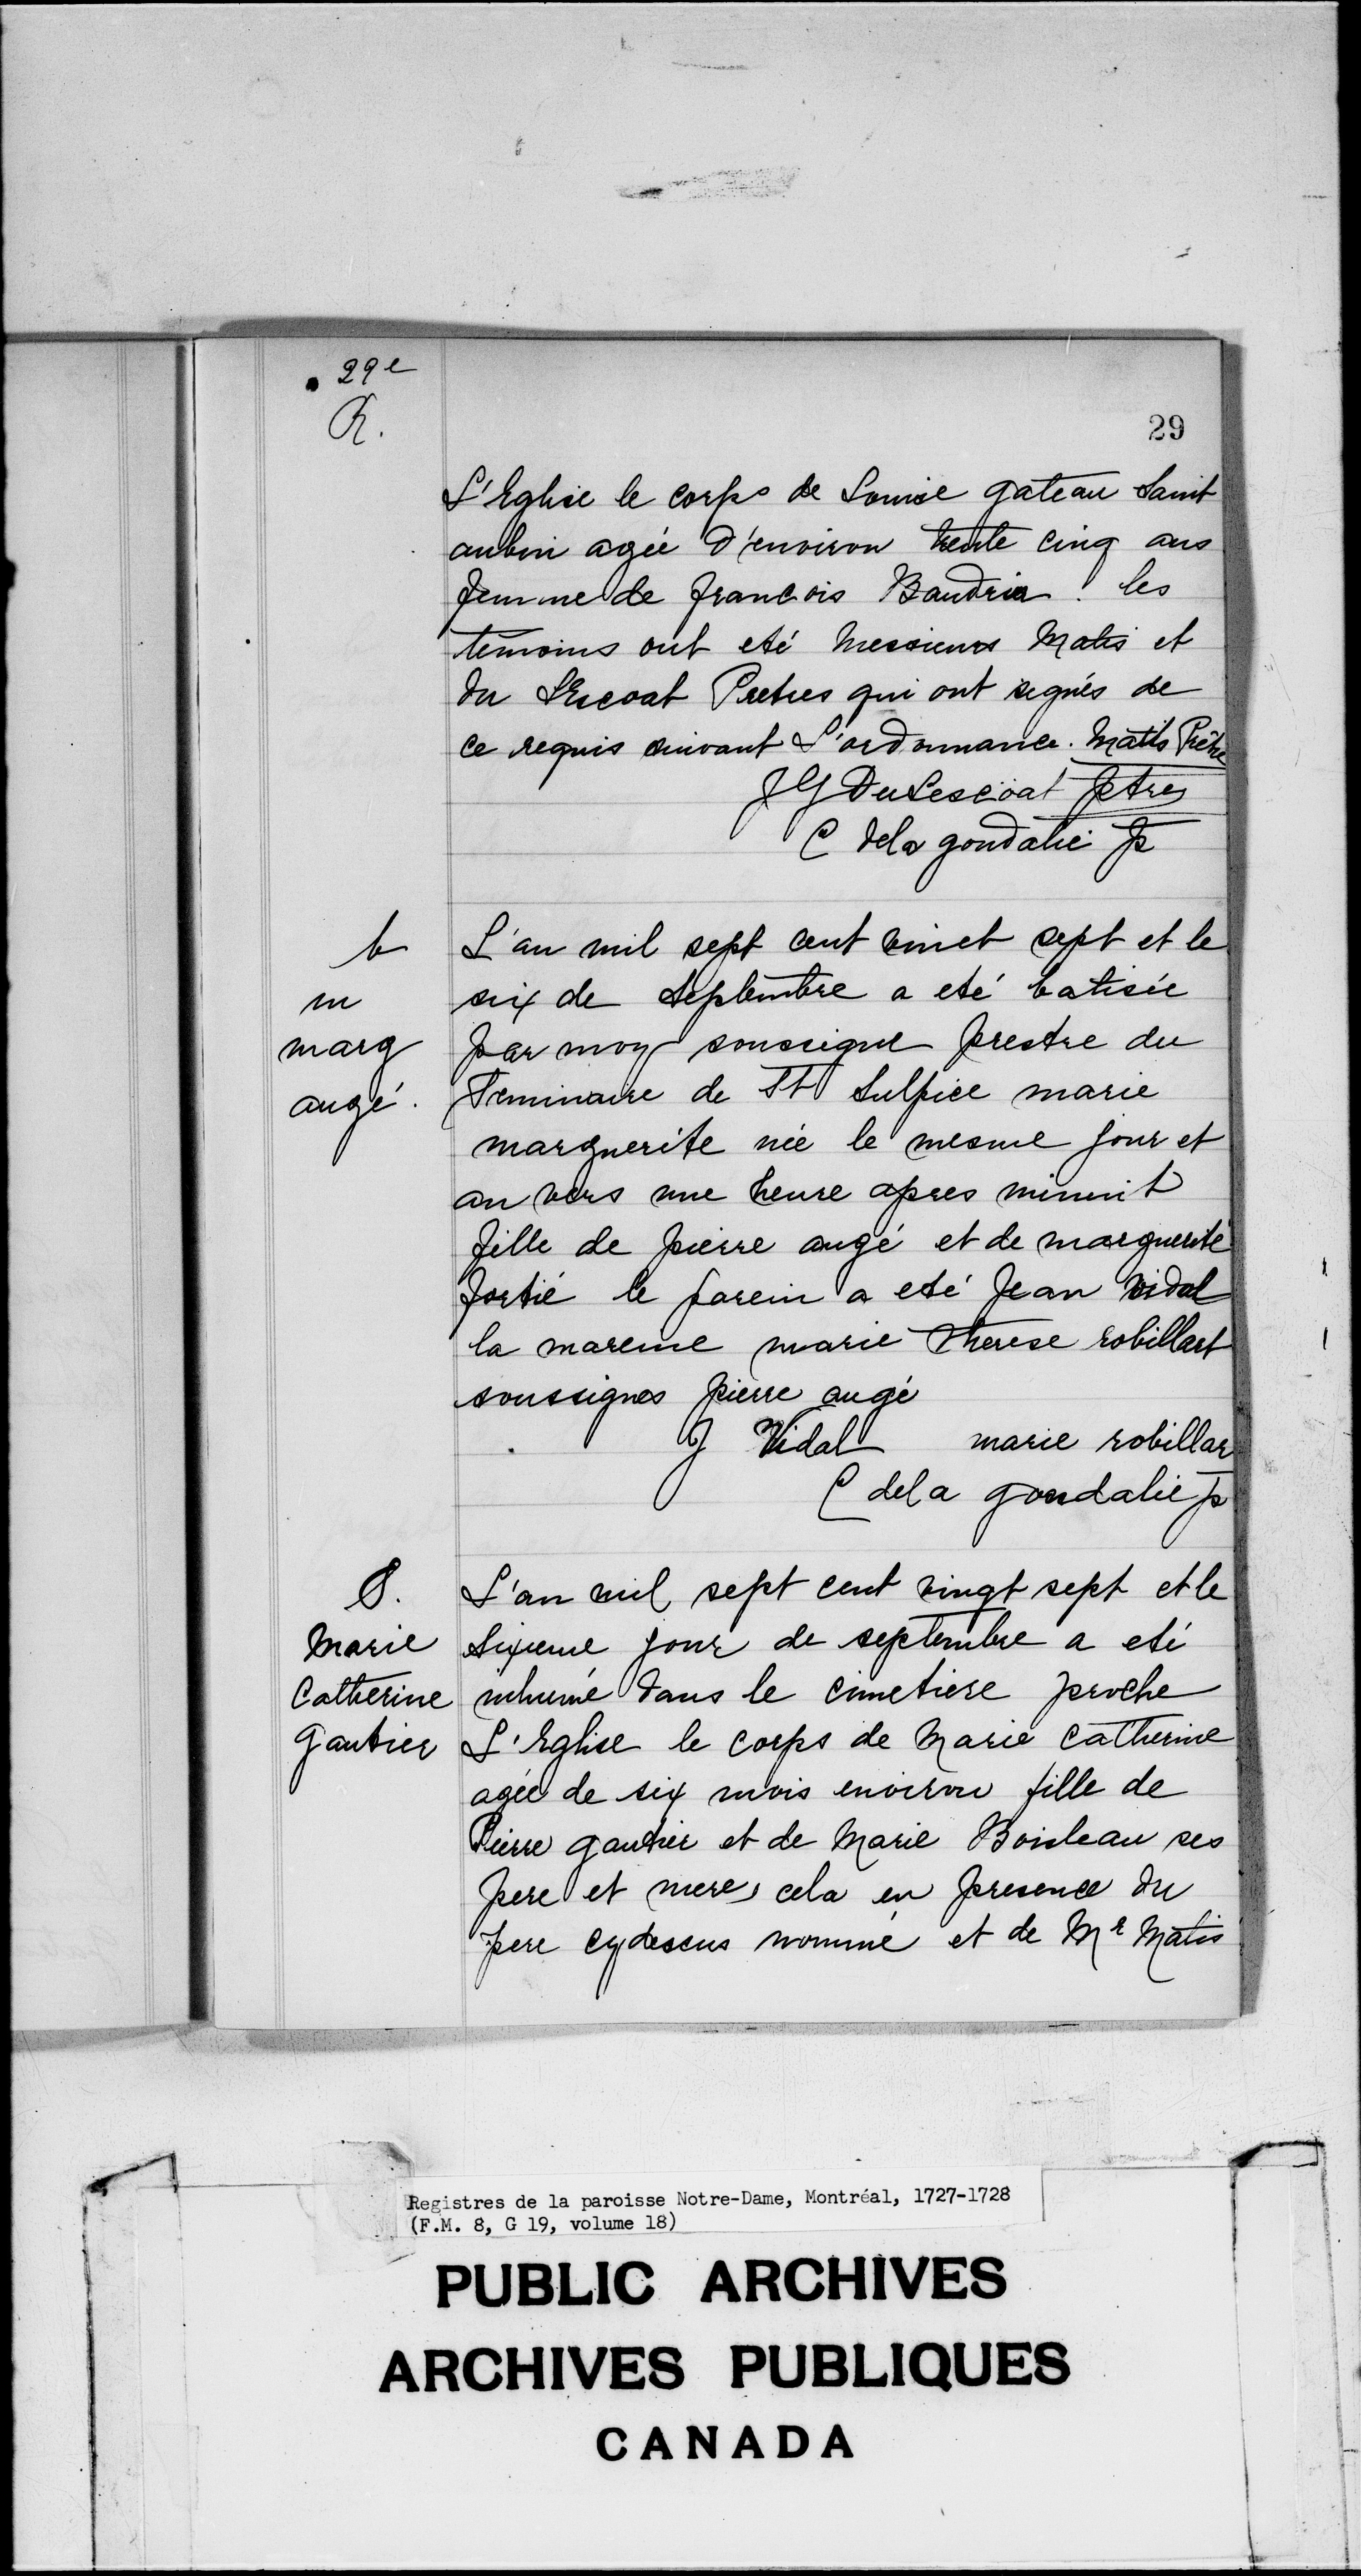 29e
R.
29
L'Eglise le corps de Louise gateau Saint
aubin agée d'environ trente cinq ans
femme de francois Baudria. les
temoins ont eté Messieurs Matis et
du LEscoat Pretres qui ont signés de
ce requis suivant L'ordonnance. Matis Prêtre
JG DuLescöat ptre
C dela goudalie p
b
m
marg
augé.
L'an mil sept cent vinct sept et le
six de septembre a eté batisée
par moy soussigné prestre du
Seminaire de St Sulpice marie
marguerite née le mesme jour et
an vers une heure apres minuit
fille de pierre augé et de marguerite
fortié le parein a eté Jean vidal
la mareine marie therese robillart
soussignes pierre augé
J Vidal marie robillar
C dela goudalie p
S.
Marie
Catherine
Gautier
L'an mil sept cent vingt sept et le
sixieme jour de septembre a eté
inhumé dans le cimetiere proche
L'Eglise le corps de Marie Catherine
agée de six mois environ fille de
Pierre gautier et de Marie Boisleau ses
pere et mere, cela en presence du
pere cydessus nommé et de Mr Matis
Registres de la paroisse Notre-Dame, Montréal, 1727-1728
(F.M. 8, G 19, volume 18)
PUBLIC ARCHIVES
ARCHIVES PUBLIQUES
CANADA